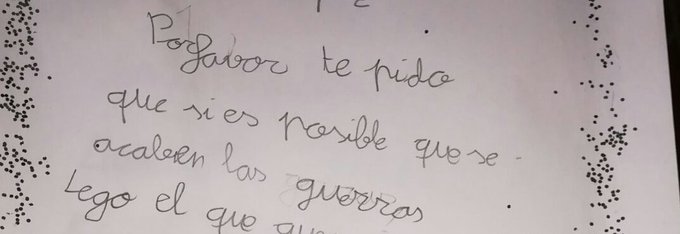 Porfavor te pido
que si es posible que se
acaben las guerras
Lego el que